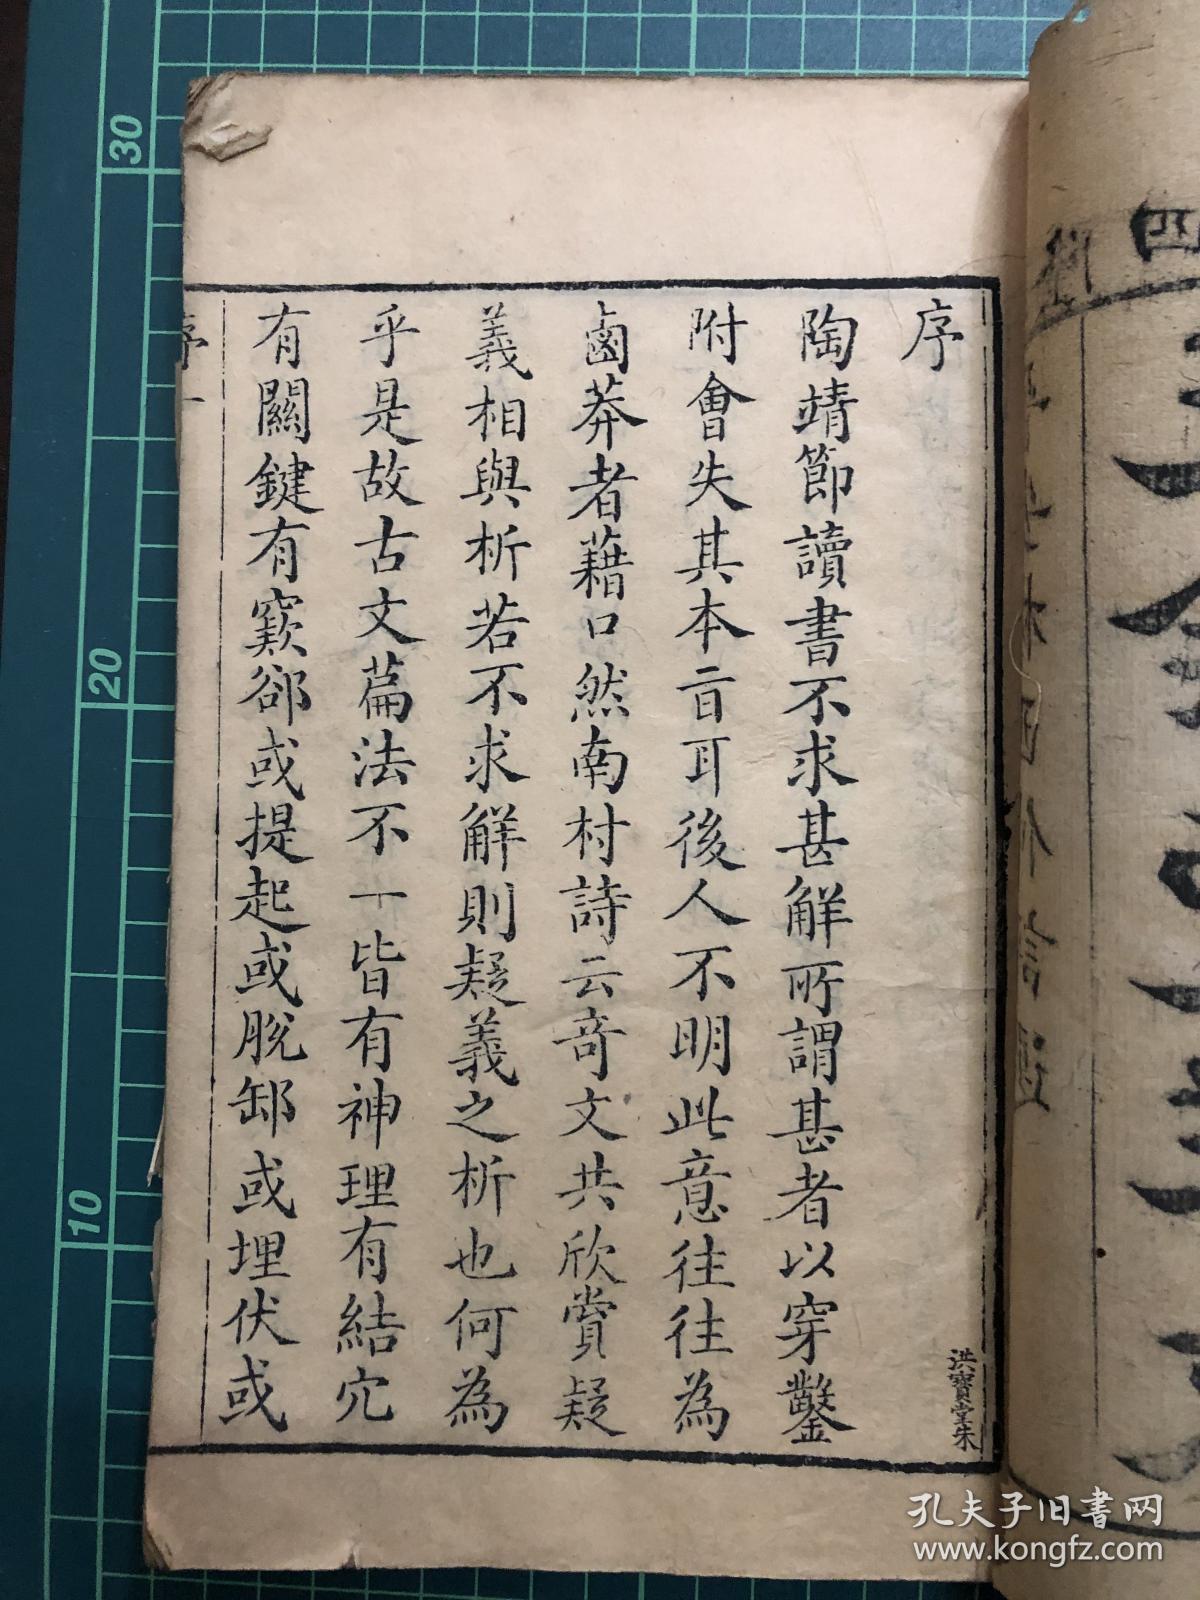 序
陶靖節讀書不求甚解所謂甚者以穿鑿
附會失其本旨耳後人不明此意往往為
鹵莽者藉口然南村詩云奇文共欣賞疑
義相與析若不求解則疑義之析也何為
乎是故古文篇法不一皆有神理有結穴
有關鍵有窾郤或提起或脫卸或埋伏或
序一
洪寶堂朱
四
30
20
10
孔夫子旧书网
www.kongfz.com